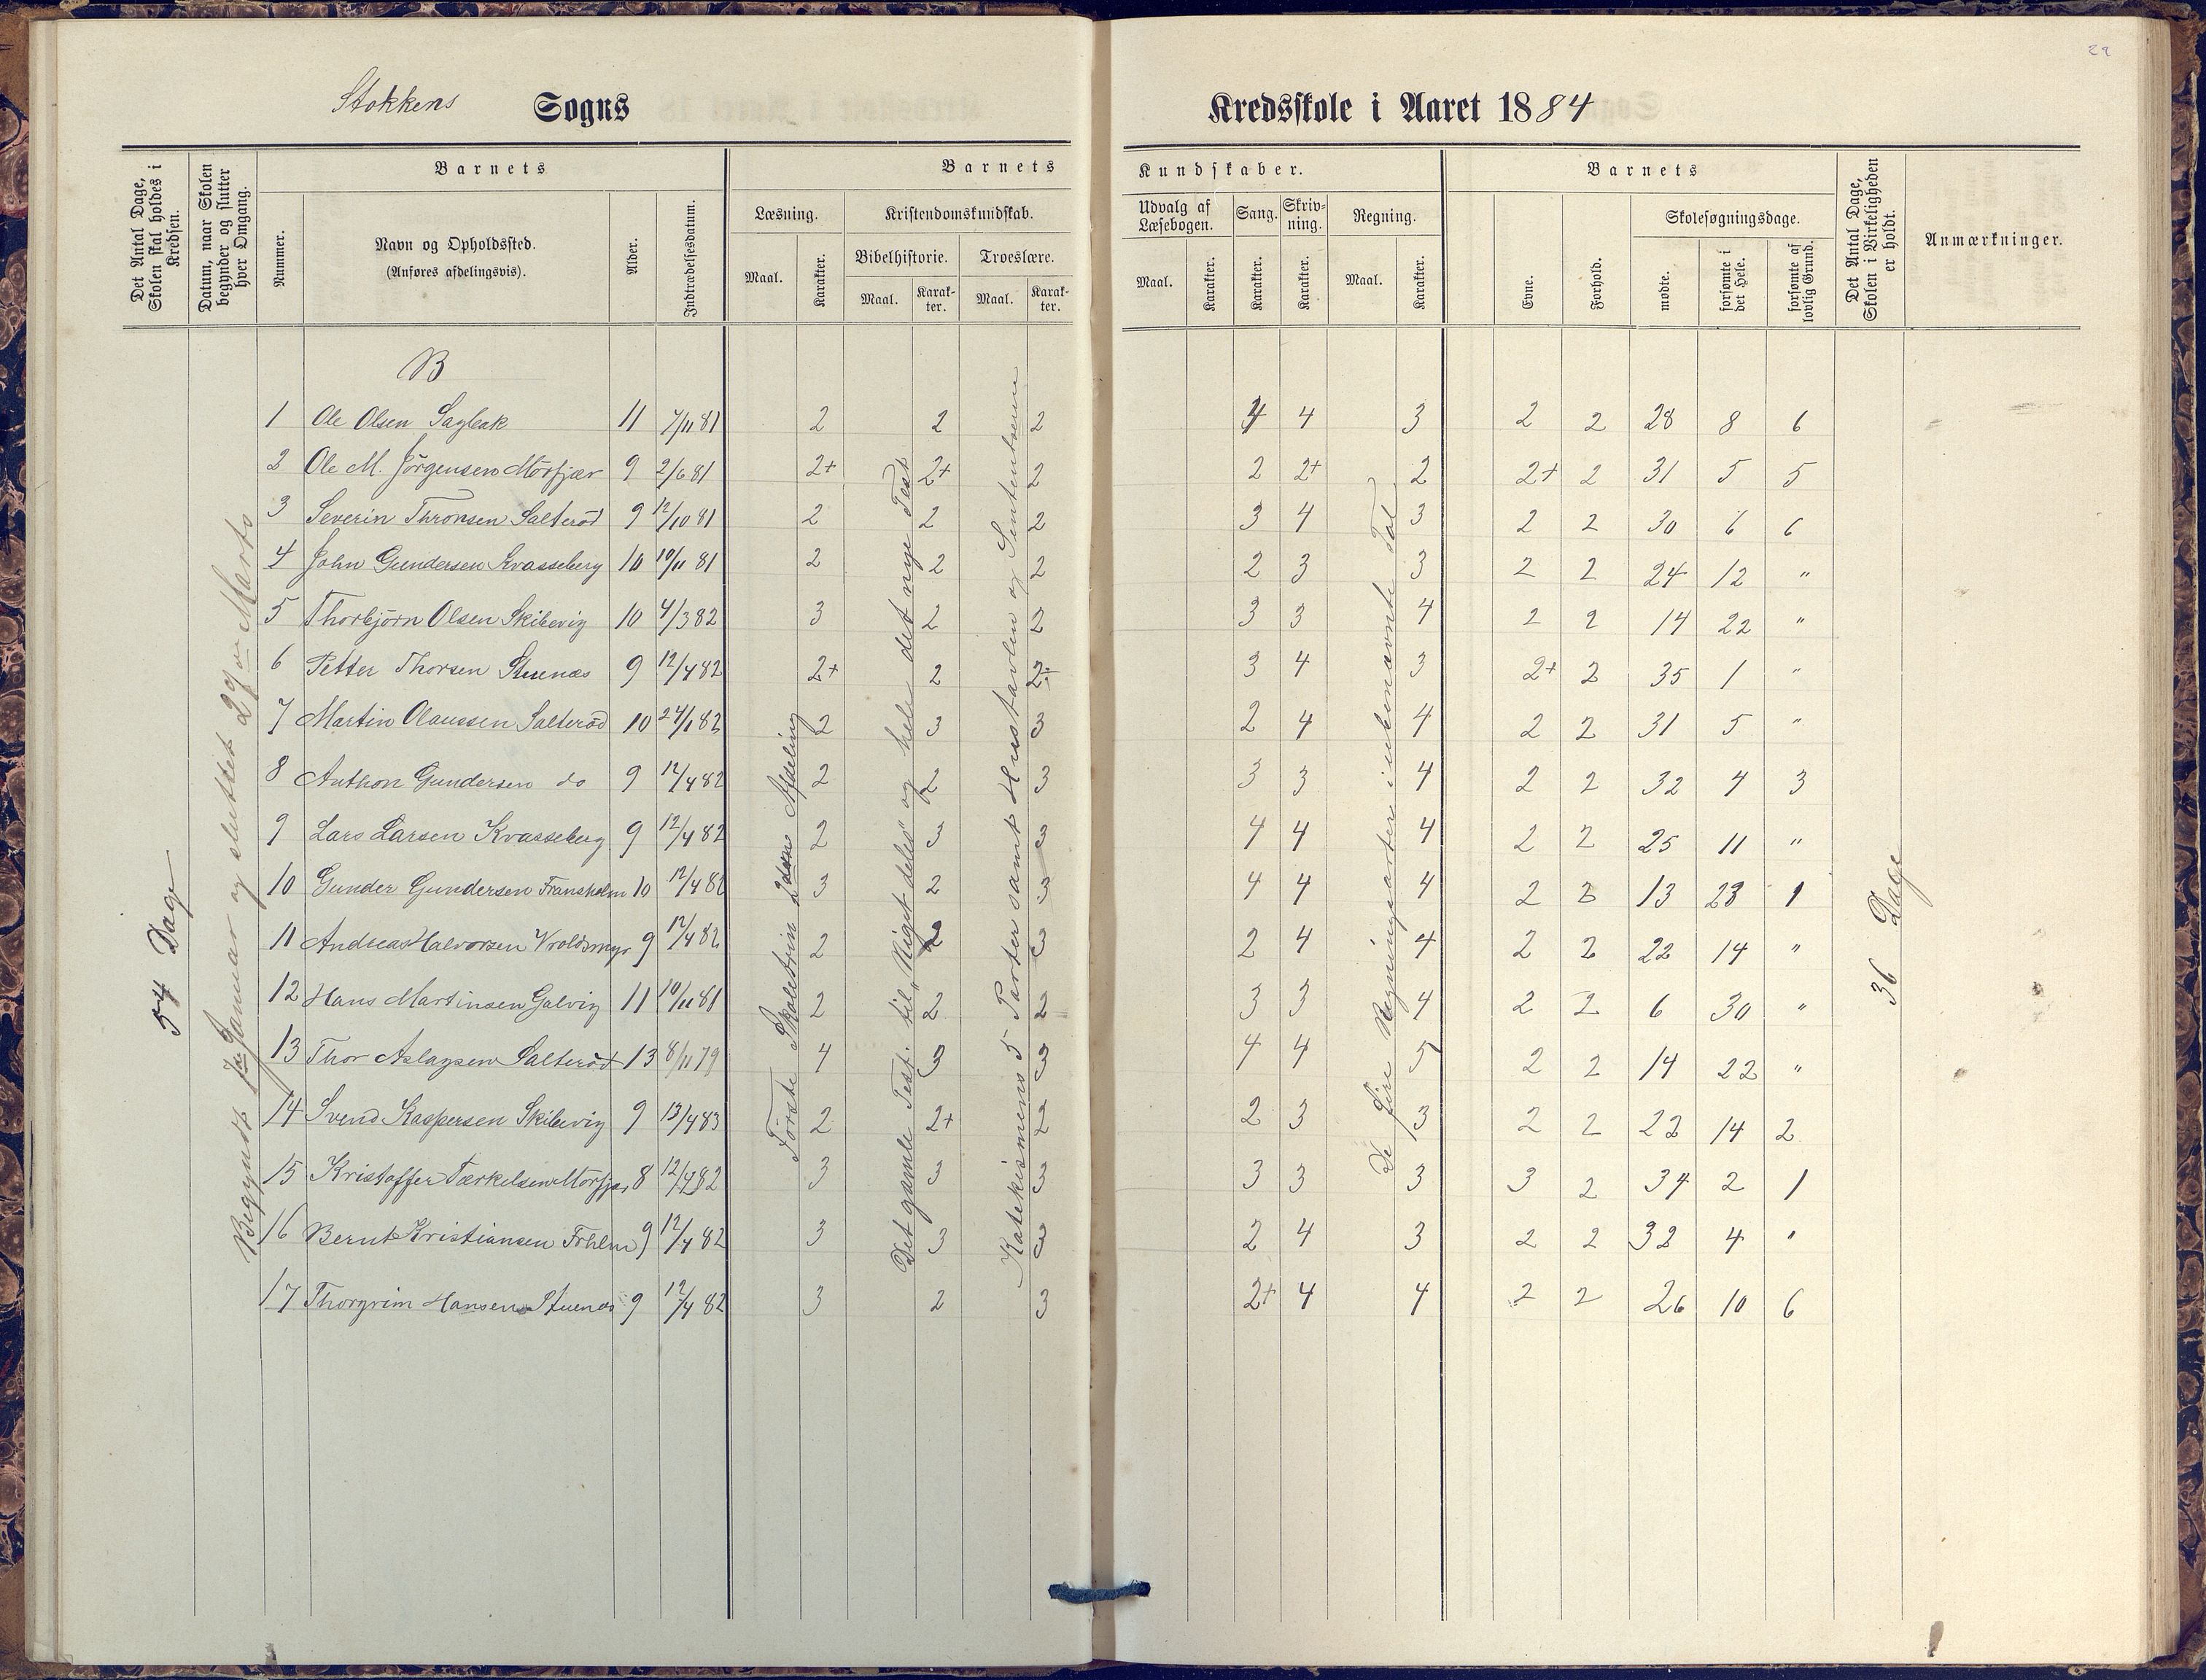 22
Stokkens Sogns Kredsskole i Aaret 1884
Det Antal Dage, Skolen skal holdes i Kredsen.
Datum, naar Skolen begynder og slutter hver Omgang.
Barnets
Nummer.
Navn og Opholdssted.
(Anføres afdelingsvis).
Alder.
Indtrædelsesdatum.
Barnets Kundskaber.
Læsning.
Maal.
Karakter.
Kristendomskundskab.
Bibelhistorie.
Maal.
Karakter.
Troeslære.
Maal.
Karakter.
Udvalg af Læsebogen.
Maal.
Karakter.
Sang.
Karakter.
Skrivning.
Karakter.
Regning.
Maal.
Karakter.
Barnets
Evne.
Forhold.
Skolesøgningsdage.
mødte.
forsømte i det Hele.
forsømte af lovlig Grund.
Det Antal Dage, Skolen i Virkeligheden er holdt.
Anmærkninger.
54 Dage
Begyndt Januar og sluttet 29 Marts
B
Første Skoletrin 2den Afdeling
Det gamle Test. til "Riget deles" og hele det nye Test
Katekismens 5 Parter samt Hustavlen og Sententserne
De fire Regningsarter i ubenævnte Tal
36 Dage
1 Ole Olsen Sagbak 11 7/11 81 2 2 2 4 4 3 2 2 28 8 6
2 Ole M. Jörgensen Mörfjær 9 2/6 81 2+ 2+ 2 2 2+ 2 2+ 2 31 5 5
3 Severin Thronsen Salteröd 9 12/10 81 2 2 2 3 4 3 2 2 30 6 6
4 John Gundersen Kvasseberg 10 10/11 81 2 2 2 2 3 3 2 2 24 12 "
5 Thorbjörn Olsen Skibevig 10 4/3 82 3 2 2 3 3 4 2 2 14 22 "
6 Petter Thorsen Stuenæs 9 12/4 82 2+ 2 2÷ 3 4 3 2+ 2 35 1 "
7 Martin Olaussen Salteröd 10 24/1 82 2 3 3 2 4 4 2 2 31 5 "
8 Anthon Gundersen do 9 12/4 82 2 2 3 3 3 4 2 2 32 4 3
9 Lars Larsen Kvasseberg 9 12/4 82 2 3 3 4 4 4 2 2 25 11 "
10 Gunder Gundersen Fransholm 10 12/4 82 3 2 3 4 4 4 2 3 13 23 1
11 Andreas Halvorsen Vroldsmyr 9 12/4 82 2 2 3 2 4 4 2 2 22 14 "
12 Hans Martinsen Galvig 11 10/11 81 2 2 2 3 3 4 2 2 6 30 "
13 Thor Aslagsen Salteröd 13 8/11 79 4 3 3 4 4 5 2 2 14 22 "
14 Svend Kaspersen Skibevig 9 13/4 83 2 2+ 2 2 3 3 2 2 22 14 2
15 Kristoffer Tærkelsen Mörfjær 8 12/4 82 3 3 3 3 3 3 3 2 34 2 1
16 Bernt Kristiansen Frhlm 9 12/4 82 3 3 3 2 4 3 2 2 32 4 "
17 Thorgrim Hansen Stuenæs 9 12/4 82 3 2 3 2+ 4 4 2 2 26 10 6